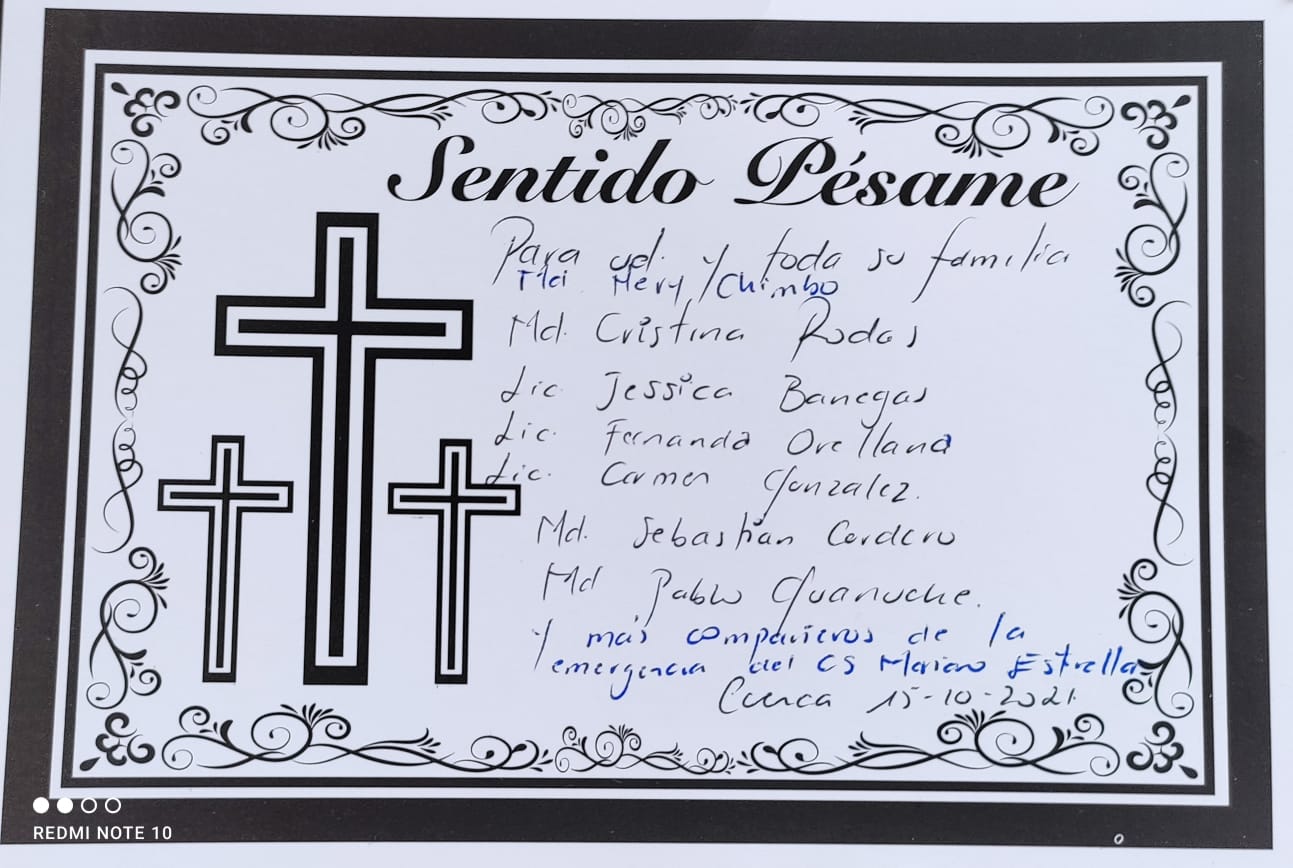 Sentido Pésame
Para ud. y toda su familia
Mery Chimbo
Md. Cristina Rodas
Lic. Jessica Banegas
Lic. Fernanda Orellana
Lic. Carmen Gonzalez.
Md. Sebastian Cordero
Md Pablo Guanuche.
Y más compañeros de la
emergencia del CS Mariano Estrella
Cuenca 15-10-2021
REDMI NOTE 10